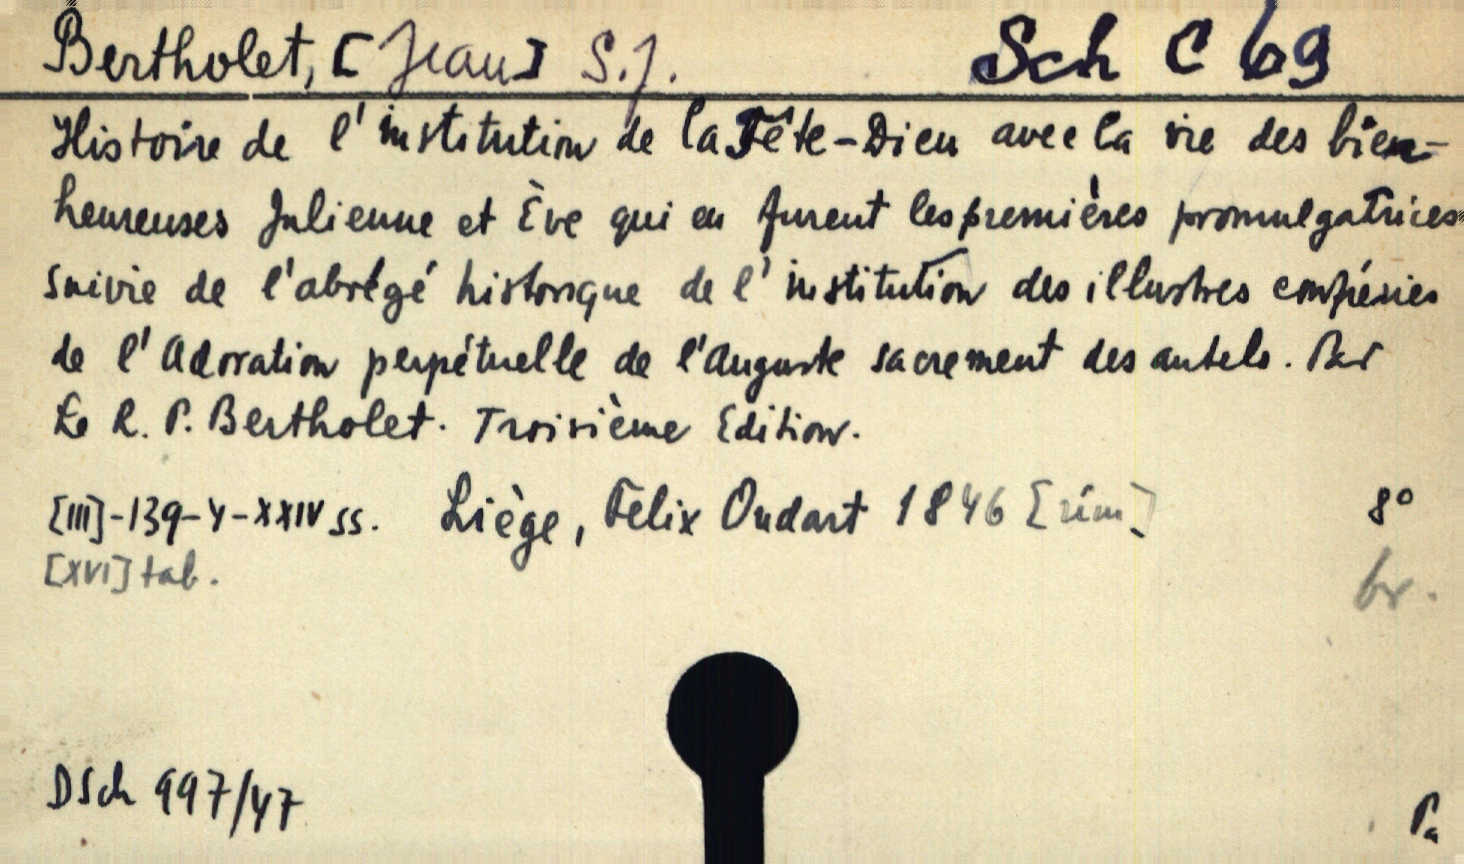 Bertholet, [Jean] S.J. Sch C 69
Histoire de l'institution de la Fête-Dieu avec la vie des bien-
heureuses Julienne et Ève qui en furent les premières promulgatrices
suivie de l'abrégé historique de l'institution des illustres confréries
de l'Adoration perpétuelle de l'Auguste sacrement des autels. Par
Le R. P. Bertholet. Troisième Edition.
[III]-139-4-XXIV ss. Liège, Felix Oudart 1846 [rím] 8°
[XVI] tab. br.
DSch 997/47 Pa